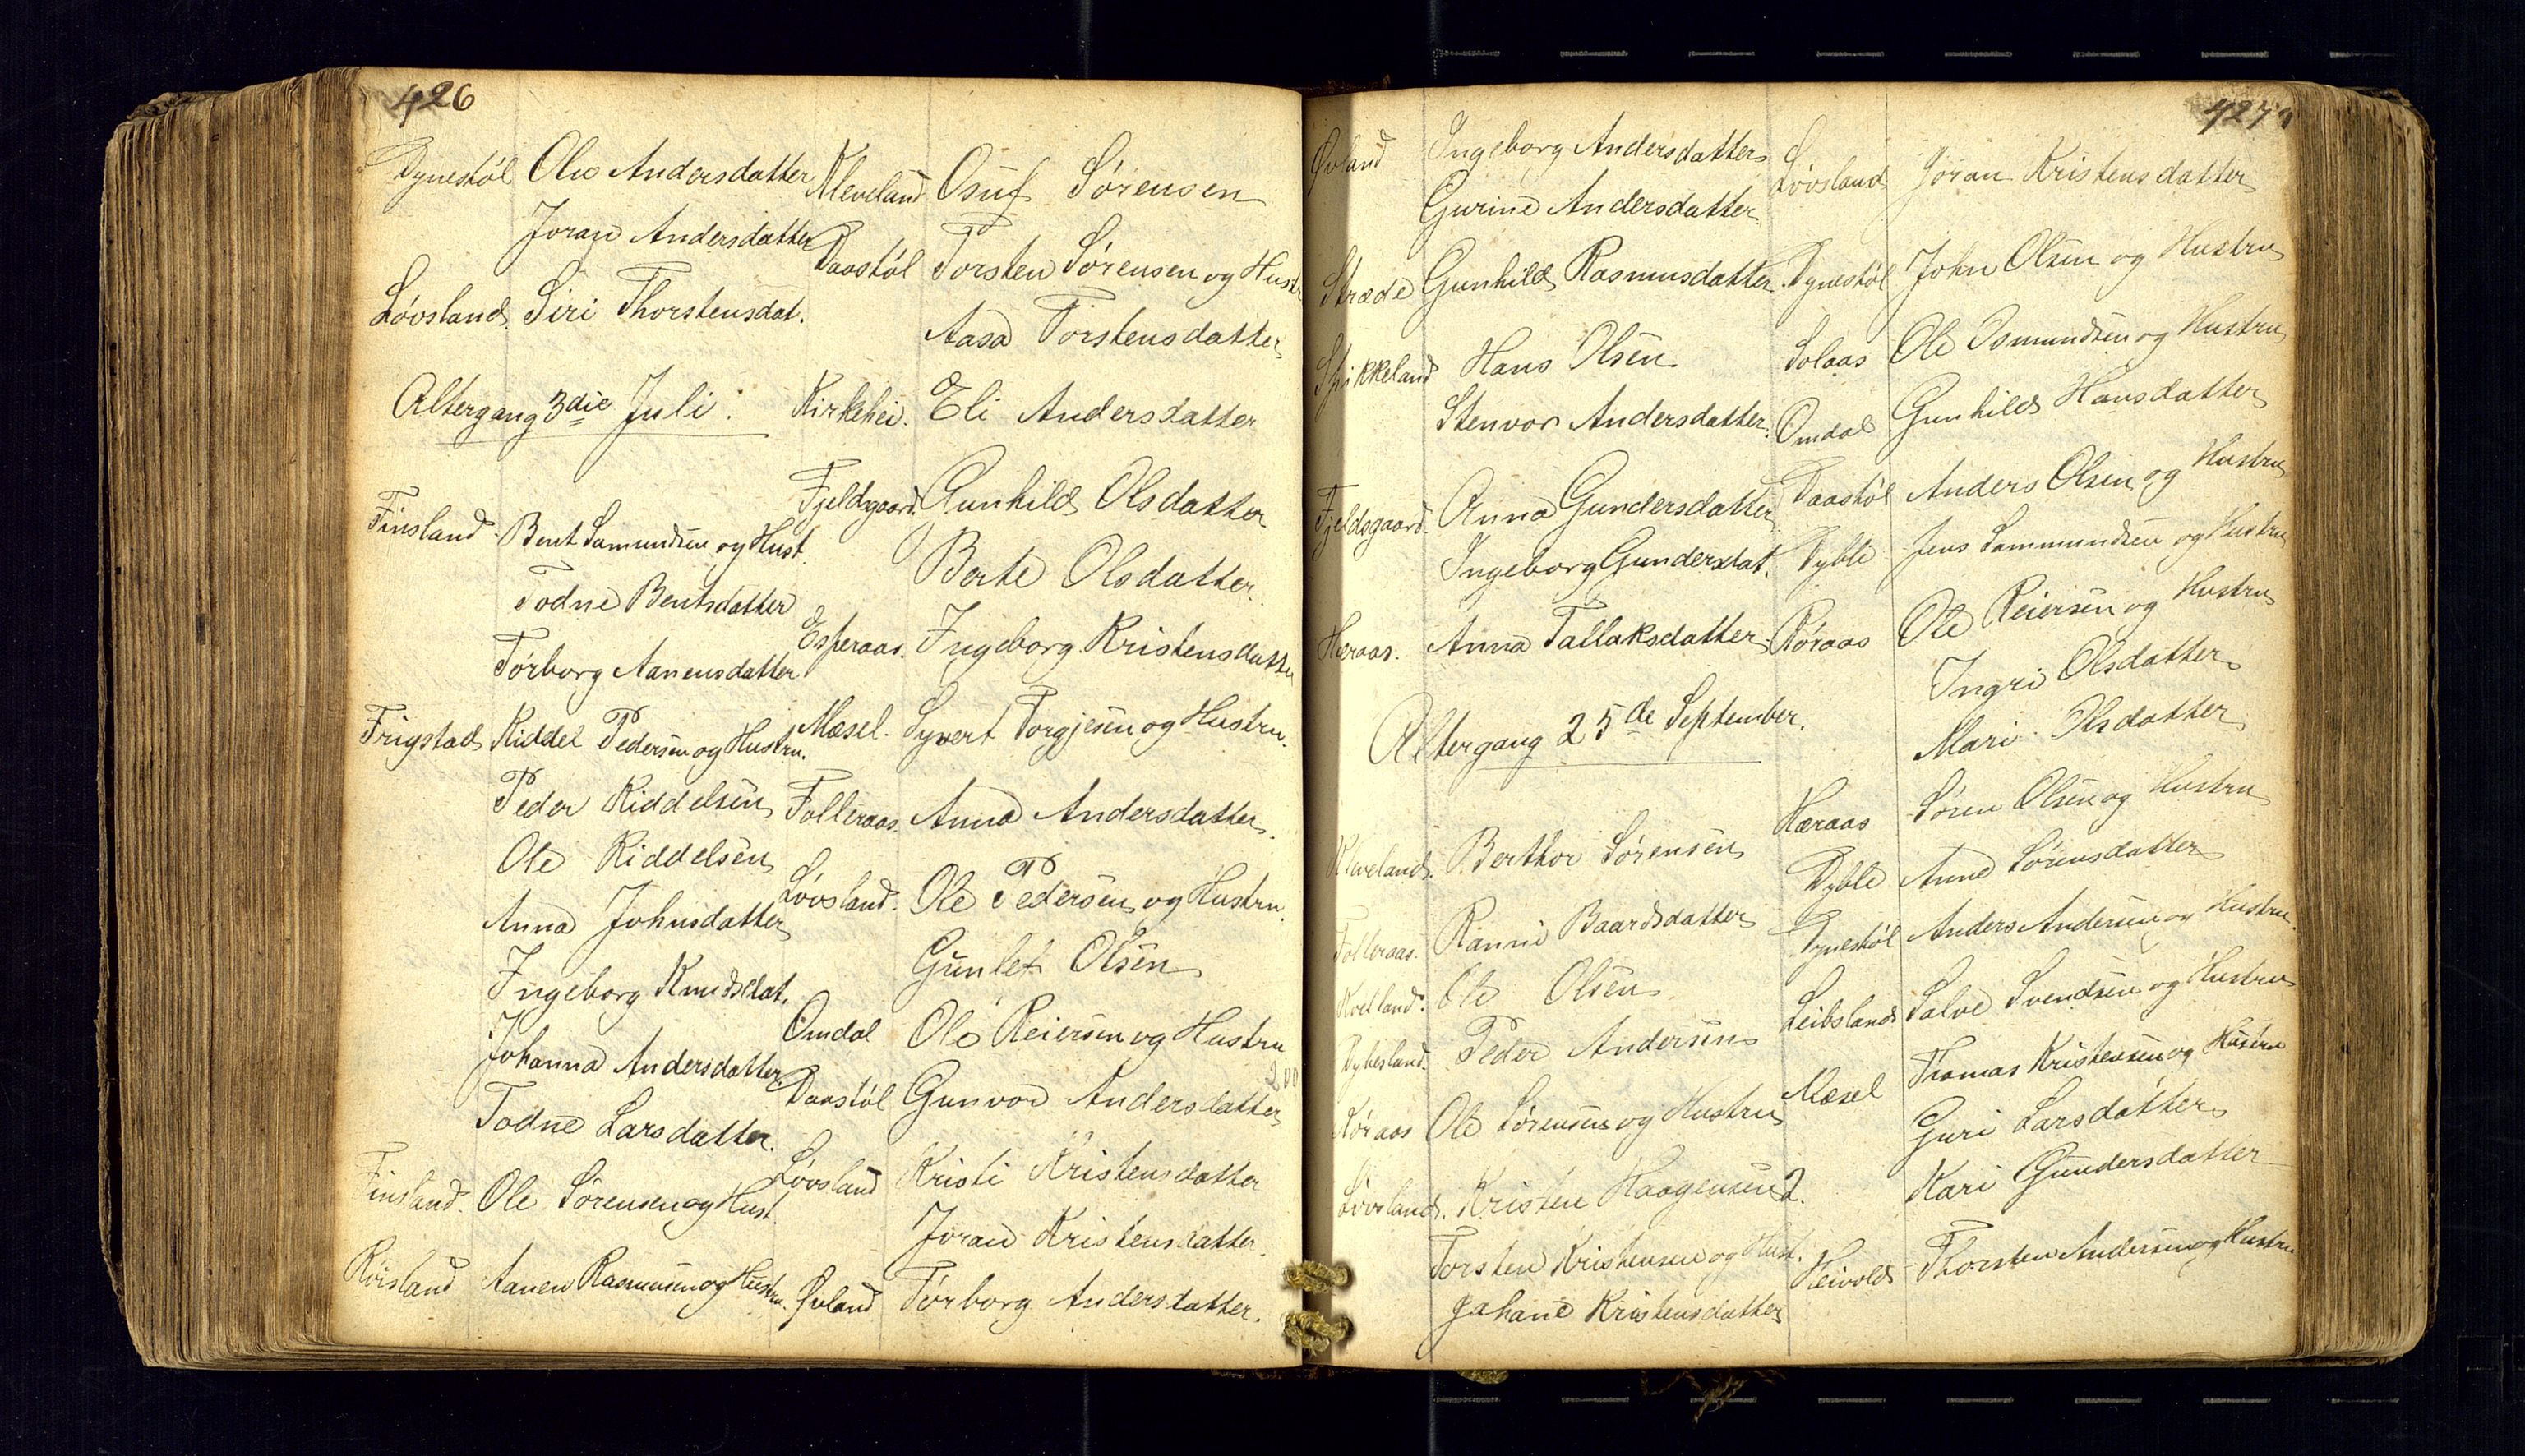 426
Dynestöl Oluv Andersdatter
Joran Andersdatter
Lövsland. Siri Thorstensdat.
Altergang 3die Juli:
Finsland. Bent Samundsen og Hust.
Todne Bentsdatter
Törborg Aanensdatter
Frigstad Kiddel Pedersen og Hustru.
Peder Kiddelsen
Ole Kiddelsen
Anna Johnsdatter
Ingeborg Knudsdat.
Johanna Andersdatter
Todne Larsdatter.
Finsland. Ole Sörensen og Hust.
Röisland Aanen Rasmusen og Hustru.
Kleveland Osuf Sörensen
Daastöl Torsten Sörensen og Hustr
Aasa Torstensdatter
Kirkehei. Eli Andersdatter
Fjeldsgaard. Gunhild Olsdatter
Berte Olsdatter.
Esperaas. Ingeborg Kristensdatter
Mæsel. Syvert Torgjesen og Hustru.
Folleraas. Anna Andersdatter.
Lövsland. Ole Pedersen og Hustru.
Gunlef Olsen
Omdal Ole Reiersen og Hustru
200
Daastöl Gunvor Andersdatter
Lövsland Kristi Kristensdatter
Joran Kristensdatter.
Øvland Törborg Andersdatter.
427
Øvland Ingeborg Andersdatter
Gurine Andersdatter.
Stræde Gunhild Rasmusdatter.
Spikkeland Hans Olsen
Stenvor Andersdatter.
Fjeldsgaard. Anna Gundersdatter
Ingeborg Gundersdat.
Hæraas. Anna Tallaksdatter.
Altergang 25de September.
Kleveland. Berthor Sörensen
Folleraas. Ranni Baardsdatter
Kvelland. Ole Olsen
Dybesland. Peder Andersen
Röraas Ole Sörensen og Hustru
Lövsland. Kristen Haagensen 2.
Torsten Kristensen og Hust.
Jahane Kristensdatter
Lövsland Joran Kristensdatter
Dynestöl John Olsen og Hustru
Solaas Ole Osmundsen og Hustru
Omdal Gunhild Hansdatter
Daastöl Anders Olsen og Hustru
Dyble Jens Sammundsen og Hustru
Röraas Ole Reiersen og Hustru
Ingri Olsdatter
Mari Olsdatter
Hæraas Sören Olsen og Hustru
Dyble Anne Sörensdatter
Dynestöl Anders Andersen og Hustru.
Leibsland Salve Svendsen og Hustru
Mæsel Thomas Kristensen og Hustru
Guri Larsdatter
Kari Gundersdatter
Heivold Thorsten Andersen og Hustru